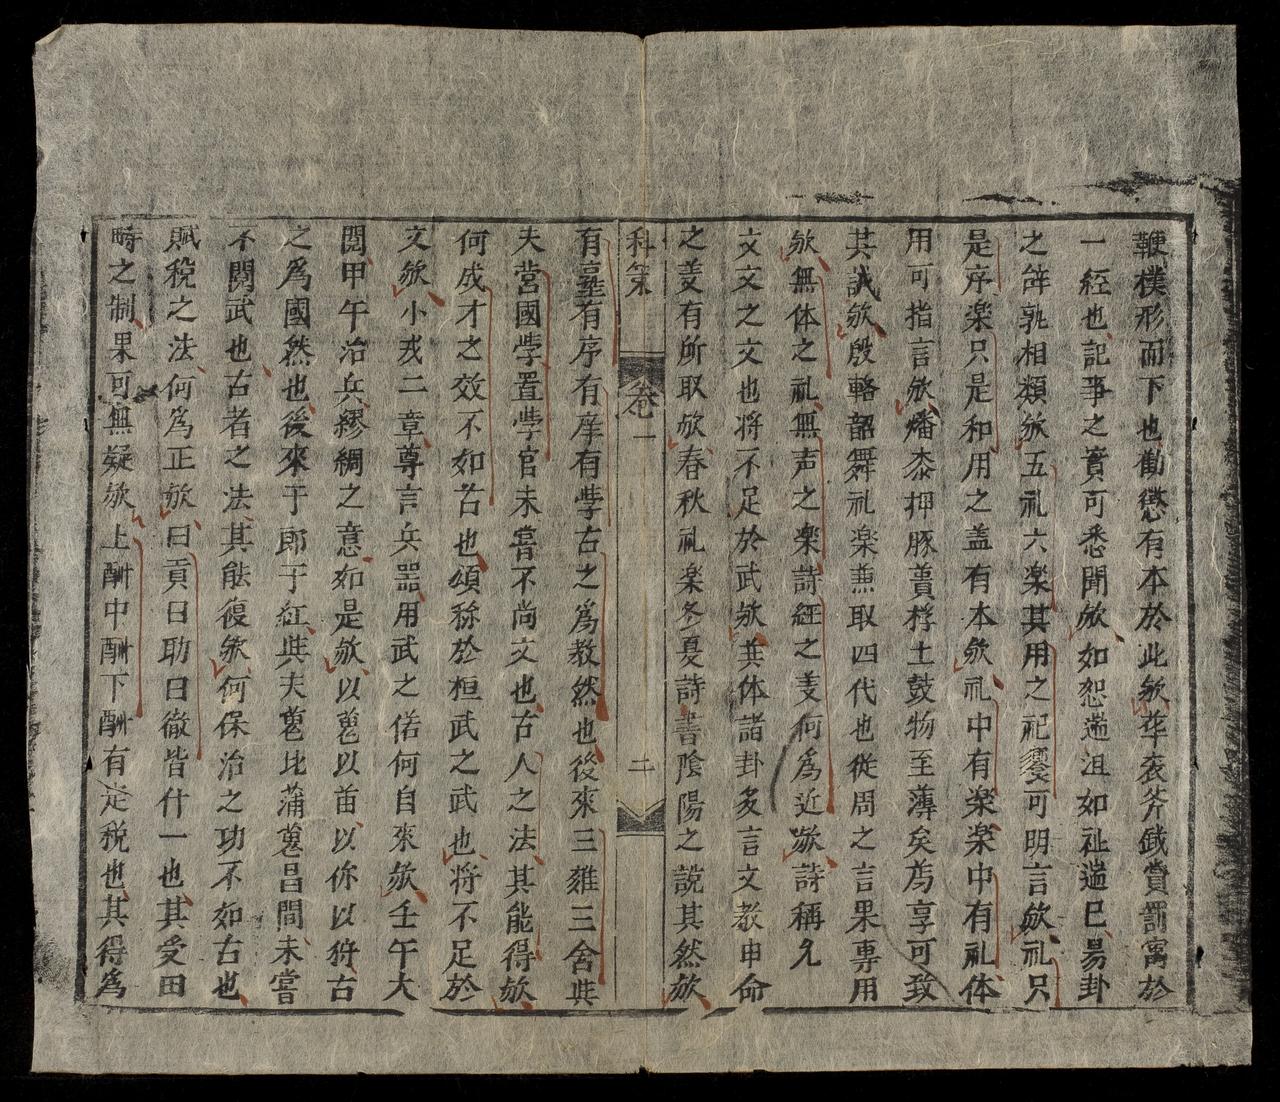 鞭樸形而下也勸懲有本於此欤華衮斧鉞賞罰寓於
一經也記事之實可悉聞欤如恕遄沮如祉遄已易卦
之辭孰相類欤五礼六楽其用之祀饗可明言欤礼只
是序楽只是和用之盖有本欤礼中有楽楽中有礼体
用可指言欤燔黍押豚蕢桴土鼓物至薄矣焉享可致
其誠欤殷輅韶舞礼楽兼取四代也從周之言果專用
欤無体之礼無声之楽詩經之美何為近欤詩稱允
文文之文也将不足於武欤其体諸卦多言文教申命
之美有所取欤春秋礼楽冬夏詩書陰陽之說其然欤
科策 卷一 二
有臺有序有庠有學古之為教然也後來三雍三舍與
夫営國學置學官未嘗不尚文也古人之法其能得欤
何成才之效不如古也頌称於桓武之武也将不足於
文欤小戎二章尊言兵器用武之偌何自來欤壬午大
閱甲午治兵繆綢之意如是欤以蒐以苗以你以狩古
之為國然也後來于郎于紅與夫蒐比蒲蒐昌間未嘗
不閱武也古者之法其能復欤何保治之功不如古也
賦税之法何為正欤曰貢曰助曰徹皆什一也其受田
時之制果可無疑欤上酧中酧下酧有定税也其得為